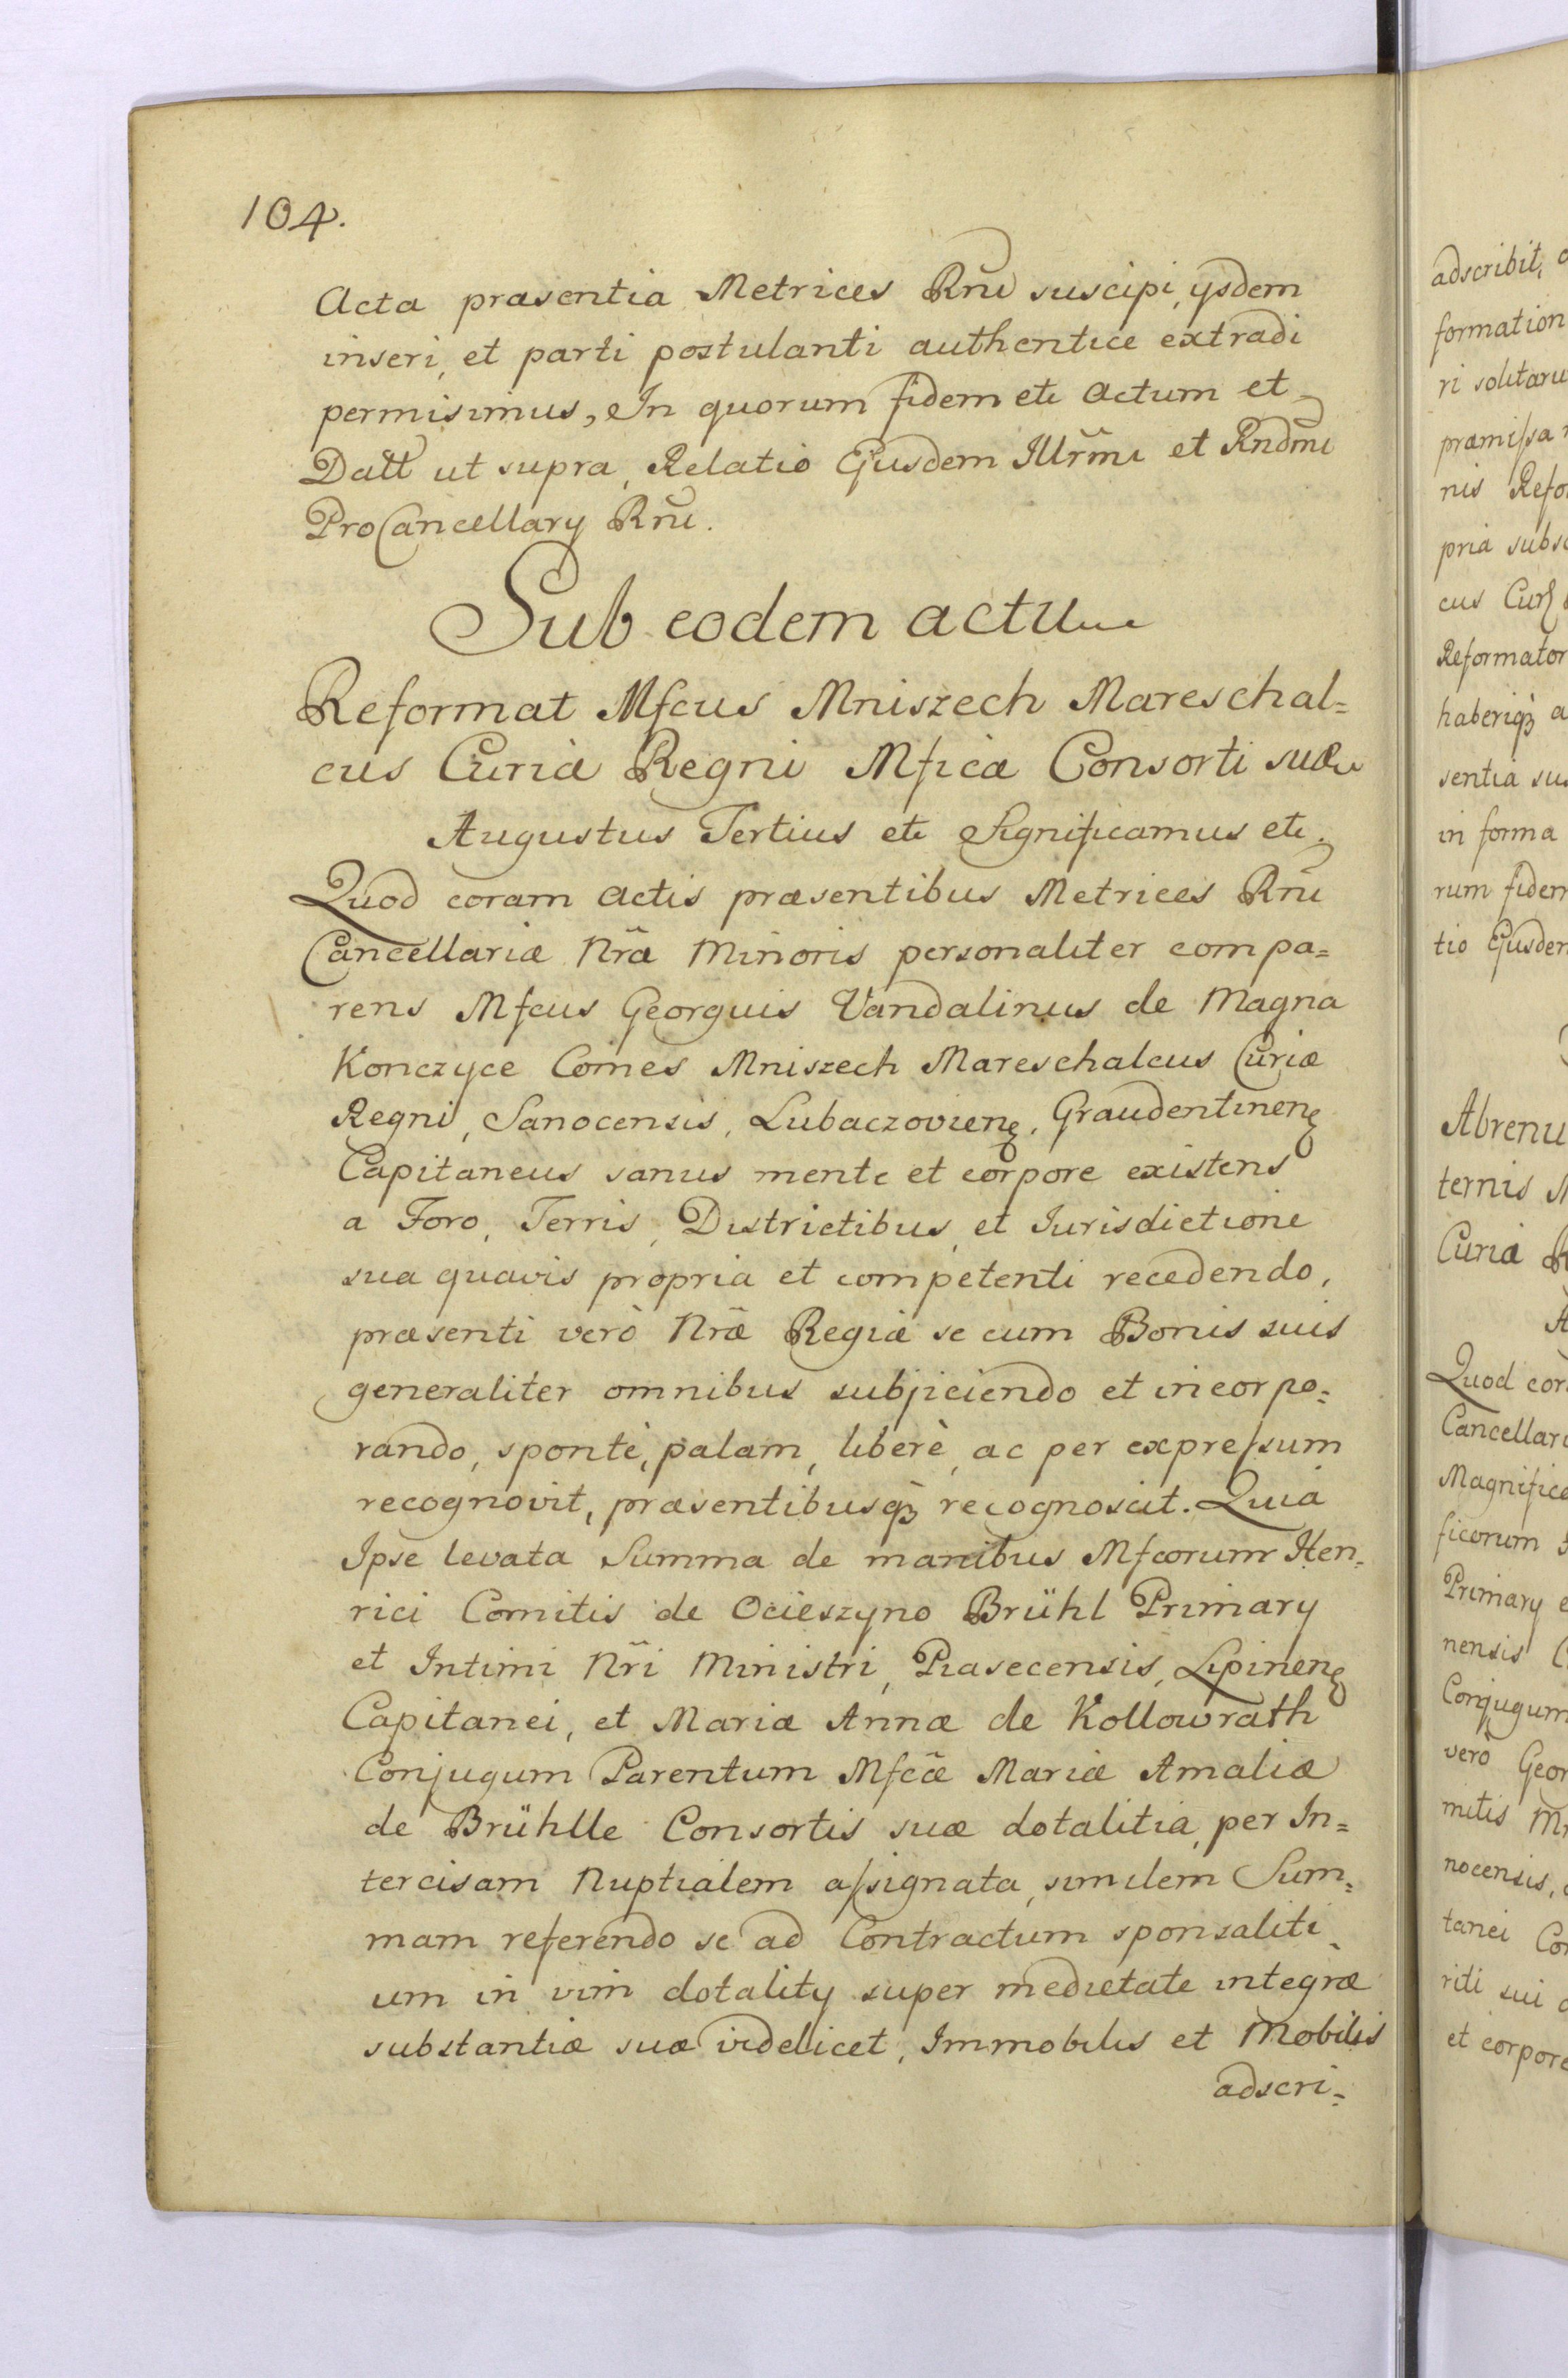 104.
Acta præsentia Metrices Rñi suscipi, ysdem
inseri, et parti postulanti authentice extradi
permisimus, In quorum fidem etc Actum et
Datt ut supra, Relatio Ejusdem Illr̃mi et Rndm̃i
ProCancellary Rñi.
Sub eodem actu
Reformat Mfcus Mniszech Mareschal=
cus Curiæ Regni Mficæ Consorti suæ
Augustus Tertius etc Significamus etc.
Quod coram Actis præsentibus Metrices Rñi
Cancellariæ Nr̃æ Minoris personaliter compa=
rens Mfcus Georguis Vandalinus de Magna
Konczyce Comes Mniszech Mareschalcus Curiæ
Regni, Sanocensis, Lubaczovienꝭ, Graudentinenꝭ
Capitaneus sanus mente et corpore existens
a Foro, Terris, Districtibus, et Iurisdictione
sua quavis propria et competenti recedendo,
præsenti verò Nr̃æ Regiæ se cum Bonis suis
generaliter omnibus subjiciendo et incorpo=
rando, spontè, palam, liberè, ac per expreſsum
recognovit, præsentibusqꝫ recognoscit. Quia
Ipse levata Summa de manibus Mfcorum Hen=
rici Comitis de Ocieszyno Brühl Primary
et Intimi Nr̃i Ministri, Piasecensis, Lipinenꝭ
Capitanei, et Mariæ Annæ de Kollowrath
Conjugum Parentum Mfcæ̃ Mariæ Amaliæ
de Brühlle Consortis suæ dotalitia, per In=
tercisam Nuptialem aſsignata, similem Sum=
mam referendo se ad Contractum sponsaliti=
um in vim dotality super medietate integræ
substantiæ suæ videlicet, Immobilis et Mobilis
adscri=
adscribit,
formation
ri solitaru
præmiſsa
nis Refor
pria subsc
cus Cur
Reformator
haberiqꝫ a
sentia sus
in forma
rum fidem
tio Ejusdem
Abrenu
ternis M
Curiæ R
A
Quod cor
Cancellari
Magnifica
ficorum
Primary e
nensis C
Conjugum
verò Geor
mitis Mn
nocensis,
tanei Co
riti sui
et corpore